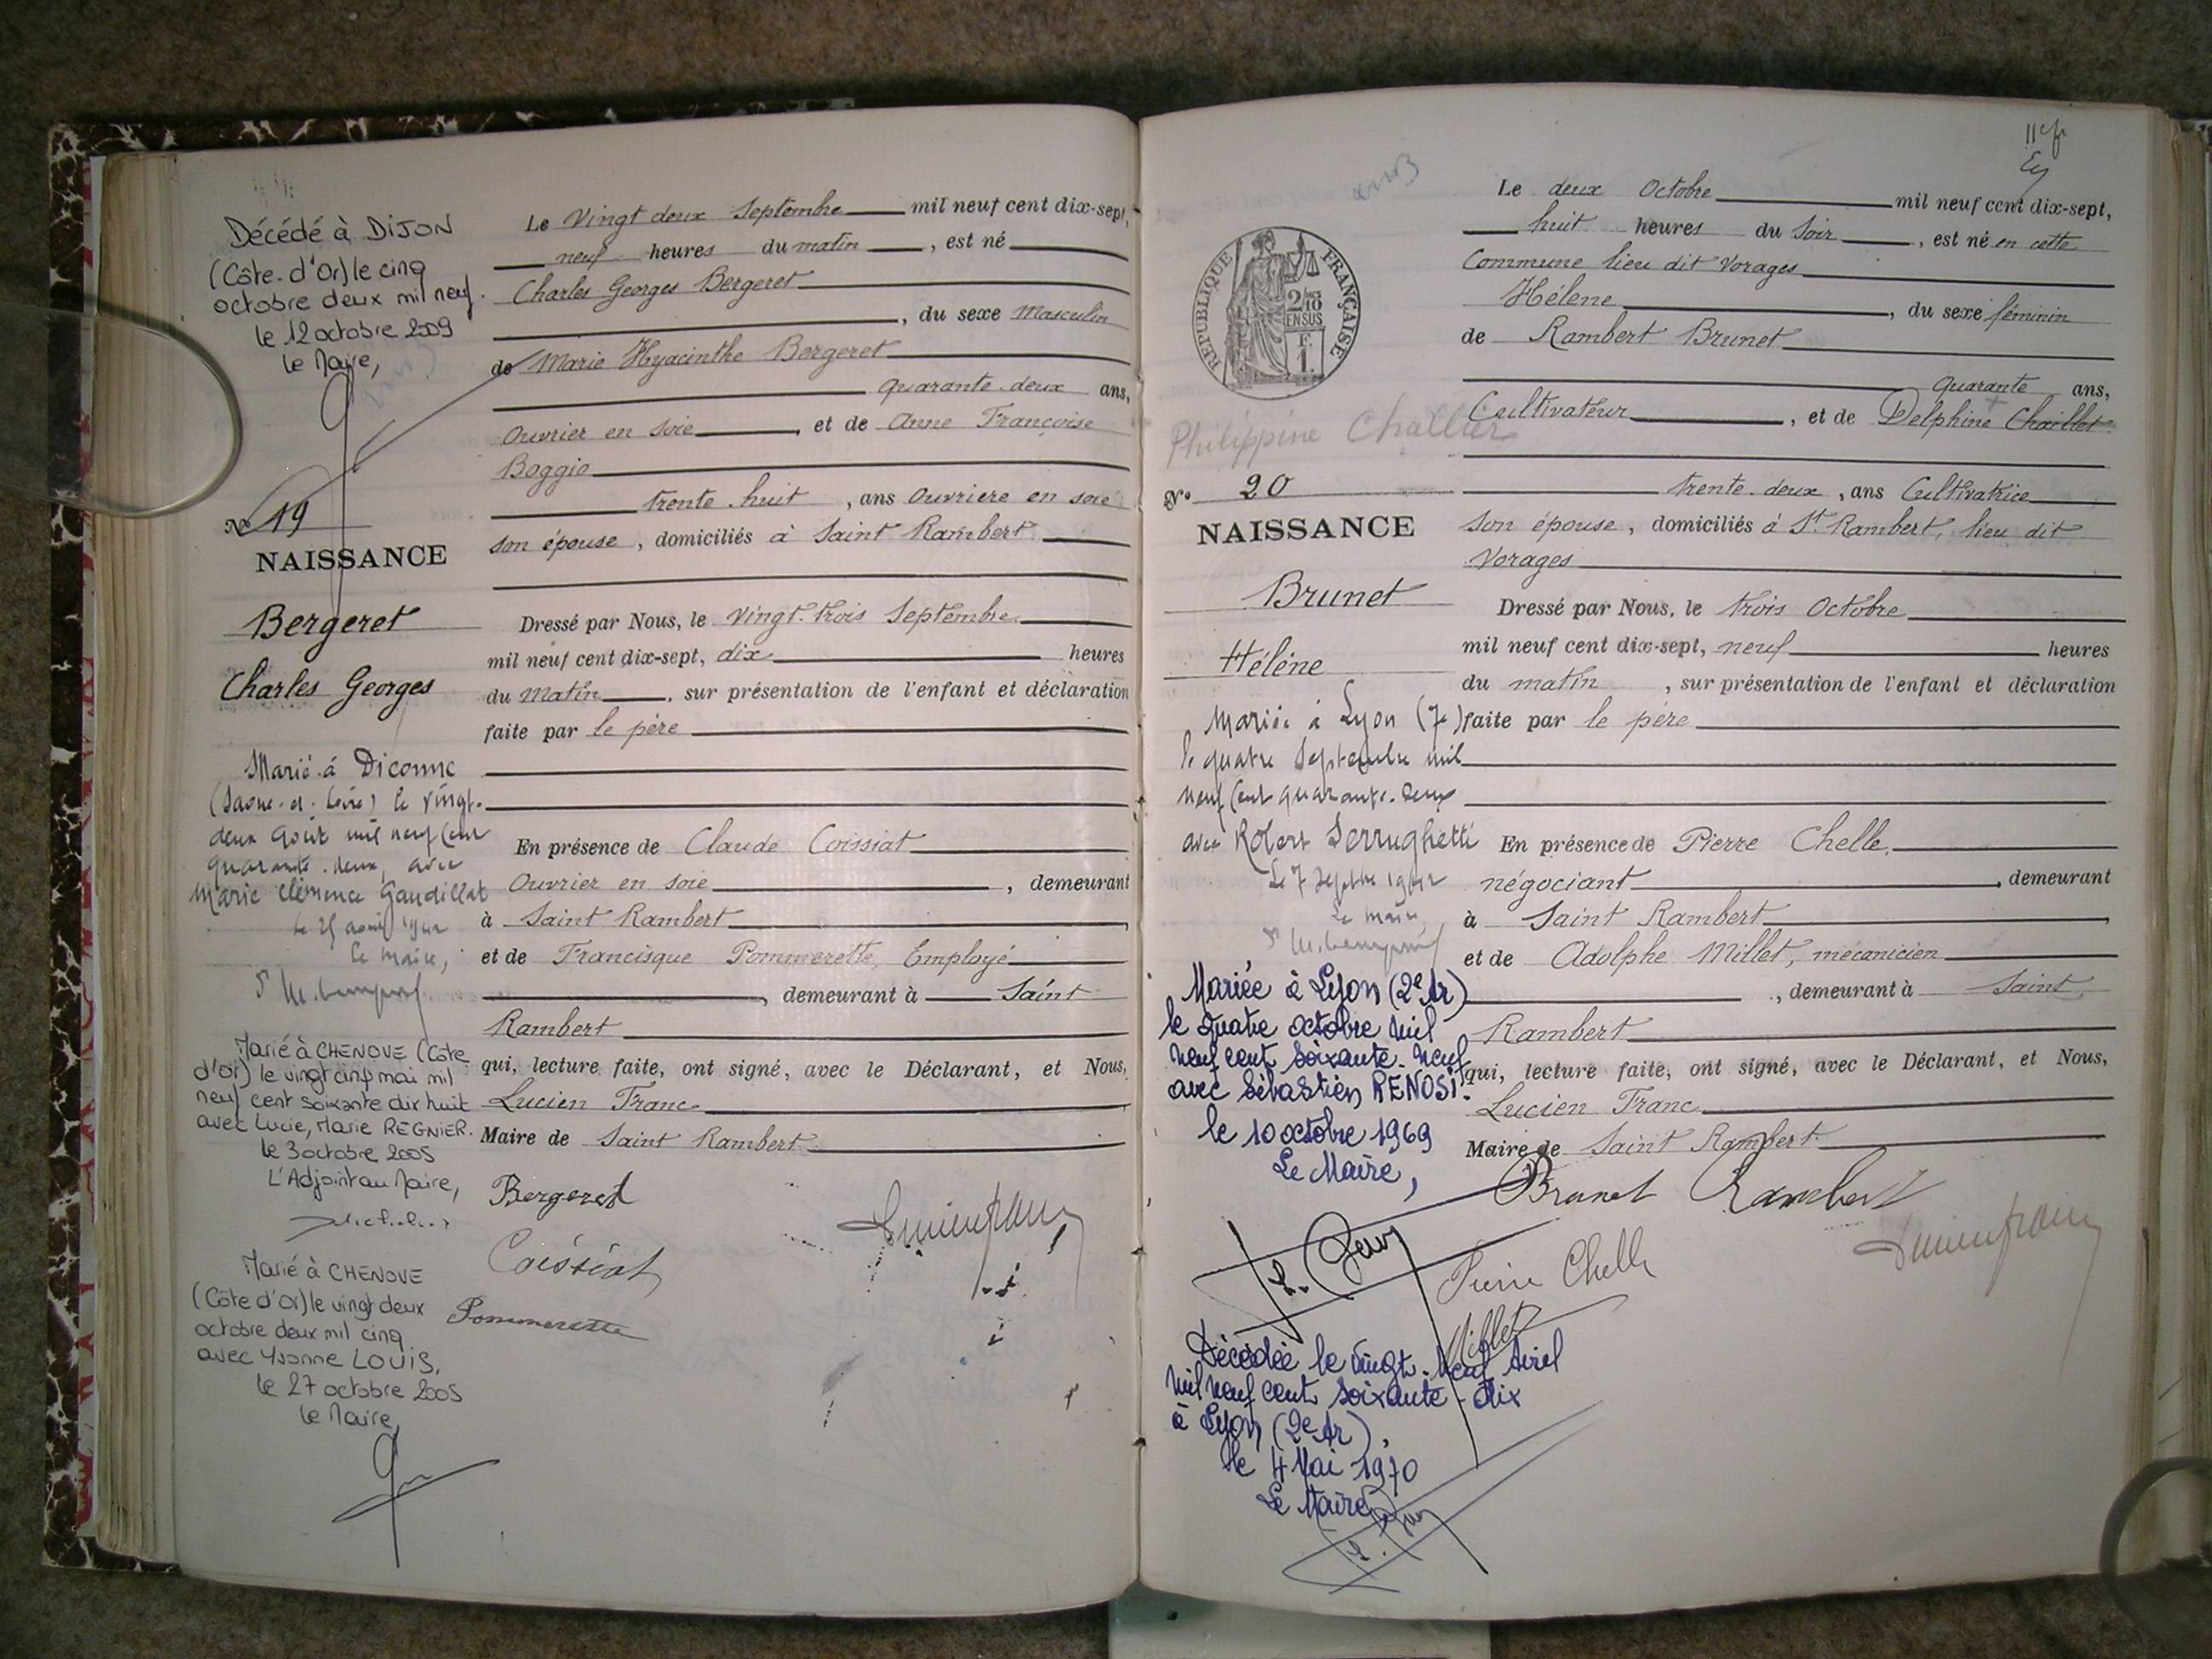 Décédé à DIJON
(Côte-d'Or) le cinq
octobre deux mil neuf.
le 12 octobre 2009
le Maire,
No 19
NAISSANCE
Bergeret
Charles Georges
Marié à Diconne
(Saône-et-Loire) le vingt-
deux août mil neuf cent
quarante-deux, avec
Marie Clémence Gaudillat
le 25 août 1942
le Maire,
Marié à CHENOVE (Côte
d'Or) le vingt cinq mai mil
neuf cent soixante dix huit
avec Lucie, Marie REGNIER.
le 3 octobre 2005
L'Adjoint au Maire,
Marié à CHENOVE
(Côte d'Or) le vingt deux
octobre deux mil cinq
avec Yvonne LOUIS.
le 27 octobre 2005
le Maire,
Le vingt deux Septembre mil neuf cent dix-sept,
neuf heures du matin, est né
Charles Georges Bergeret
, du sexe Masculin
de Marie Hyacinthe Bergeret
quarante-deux ans,
Ouvrier en soie, et de Anne Françoise
Boggio
trente huit, ans Ouvrière en soie
son épouse, domiciliés à Saint Rambert
Dressé par Nous, le vingt-trois Septembre
mil neuf cent dix-sept, dix heures
du matin, sur présentation de l'enfant et déclaration
faite par le père
En présence de Claude Coissiat
Ouvrier en soie, demeurant
à Saint Rambert
et de Francisque Pommerette, Employé
, demeurant à Saint
Rambert
qui, lecture faite, ont signé, avec le Déclarant, et Nous,
Lucien Franc
Maire de Saint Rambert
Bergeret
Coissiat
Pommerette
Lucien franc
REPUBLIQUE FRANÇAISE
2/10
EN SUS
F.
1.
Philippine Challier
No 20
NAISSANCE
Brunet
Hélène
Mariée à Lyon (7e)
le quatre Septembre mil
neuf cent quarante-deux
avec Robert Serrughetti
Le 7 Septbre 1942
Le Maire
Mariée à Lyon (2e Ar)
le quatre octobre mil
neuf cent soixante-neuf
avec Sébastien RENOSI.
le 10 octobre 1969
Le Maire,
Décédée le vingt-neuf Avril
mil neuf cent soixante-dix
à Lyon (2e Ar),
le 4 Mai 1970
Le Maire
Le deux Octobre mil neuf cent dix-sept,
huit heures du soir, est né en cette
Commune lieu dit Vorages
Hélène, du sexe féminin
de Rambert Brunet
quarante ans,
Cultivateur, et de Delphine Chaillet
trente-deux, ans Cultivatrice
son épouse, domiciliés à St Rambert, lieu dit
Vorages
Dressé par Nous, le trois Octobre
mil neuf cent dix-sept, neuf heures
du matin, sur présentation de l'enfant et déclaration
faite par le père
En présence de Pierre Chelle,
négociant, demeurant
à Saint Rambert
et de Adolphe Millet, mécanicien
, demeurant à Saint
Rambert
qui, lecture faite, ont signé, avec le Déclarant, et Nous,
Lucien Franc
Maire de Saint Rambert
Brunet Rambert
Pierre Chelle
Millet
Lucien franc